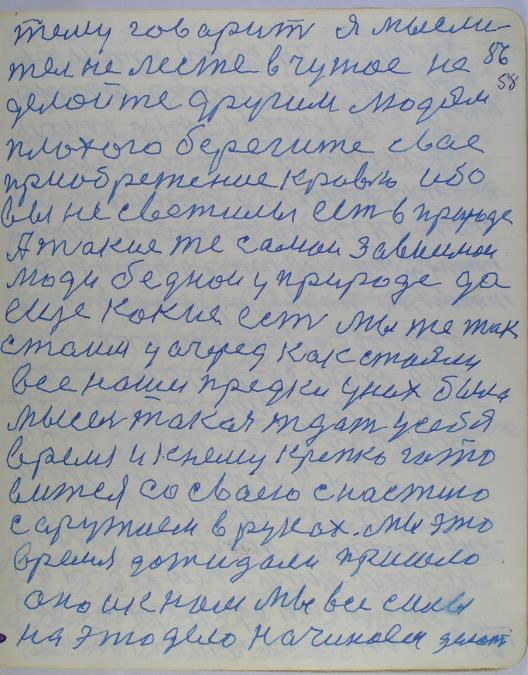 тему говарит я мысли-
тел не лесте в чужое на 86
делойте другим людям 58
плохого берегите свае
приобретение кравлю ибо
вы не светилы есть в природе
А такие же самои зависимои
люди беднои у природе да
еще какие есть мы же так
стаим у очеред как стояли
все наши предки у них была
мысля такая ждат у себя
время и к нему крепко гато
вится со сваею снастию
с аружием в руках. мы это
время дожидали пришло
оно и к нам мы все силы
на это дело начинаем делат